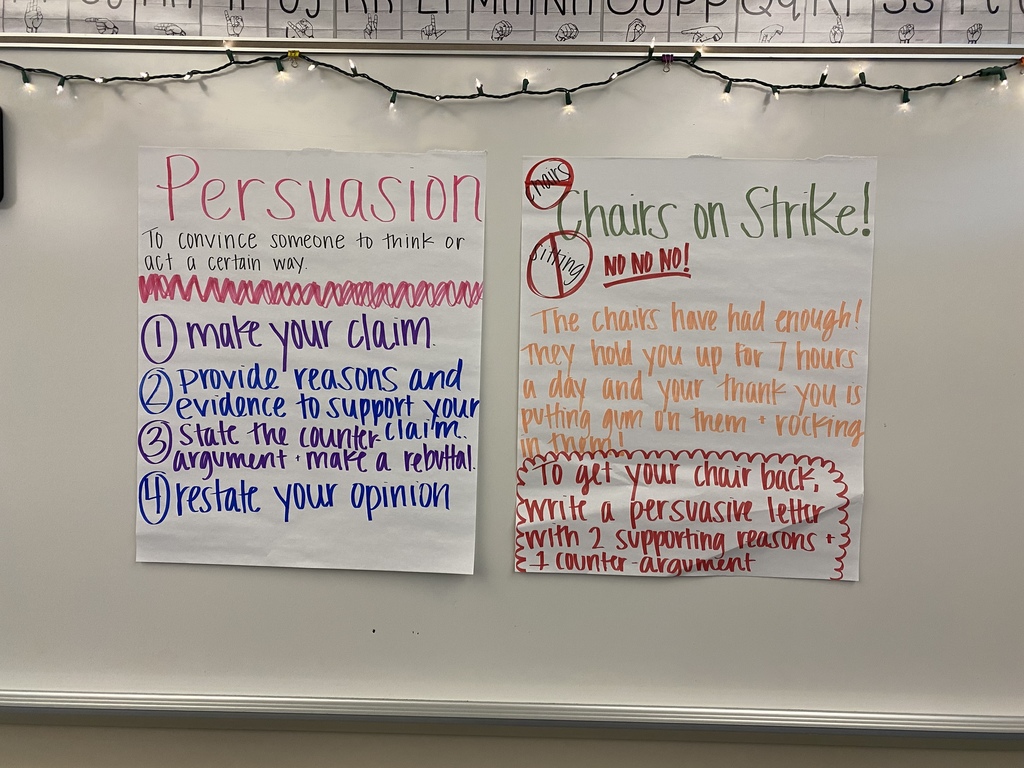 Persuasion
To convince someone to think or
act a certain way.
① make your claim.
② provide reasons and
evidence to support your
claim.
③ State the counter-
argument + make a rebuttal.
④ restate your opinion
Chairs
Chairs on Strike!
Sitting
NO NO NO!
The chairs have had enough!
They hold you up for 7 hours
a day and your thank you is
putting gum on them + rocking
in them!
To get your chair back,
write a persuasive letter
with 2 supporting reasons +
1 counter-argument